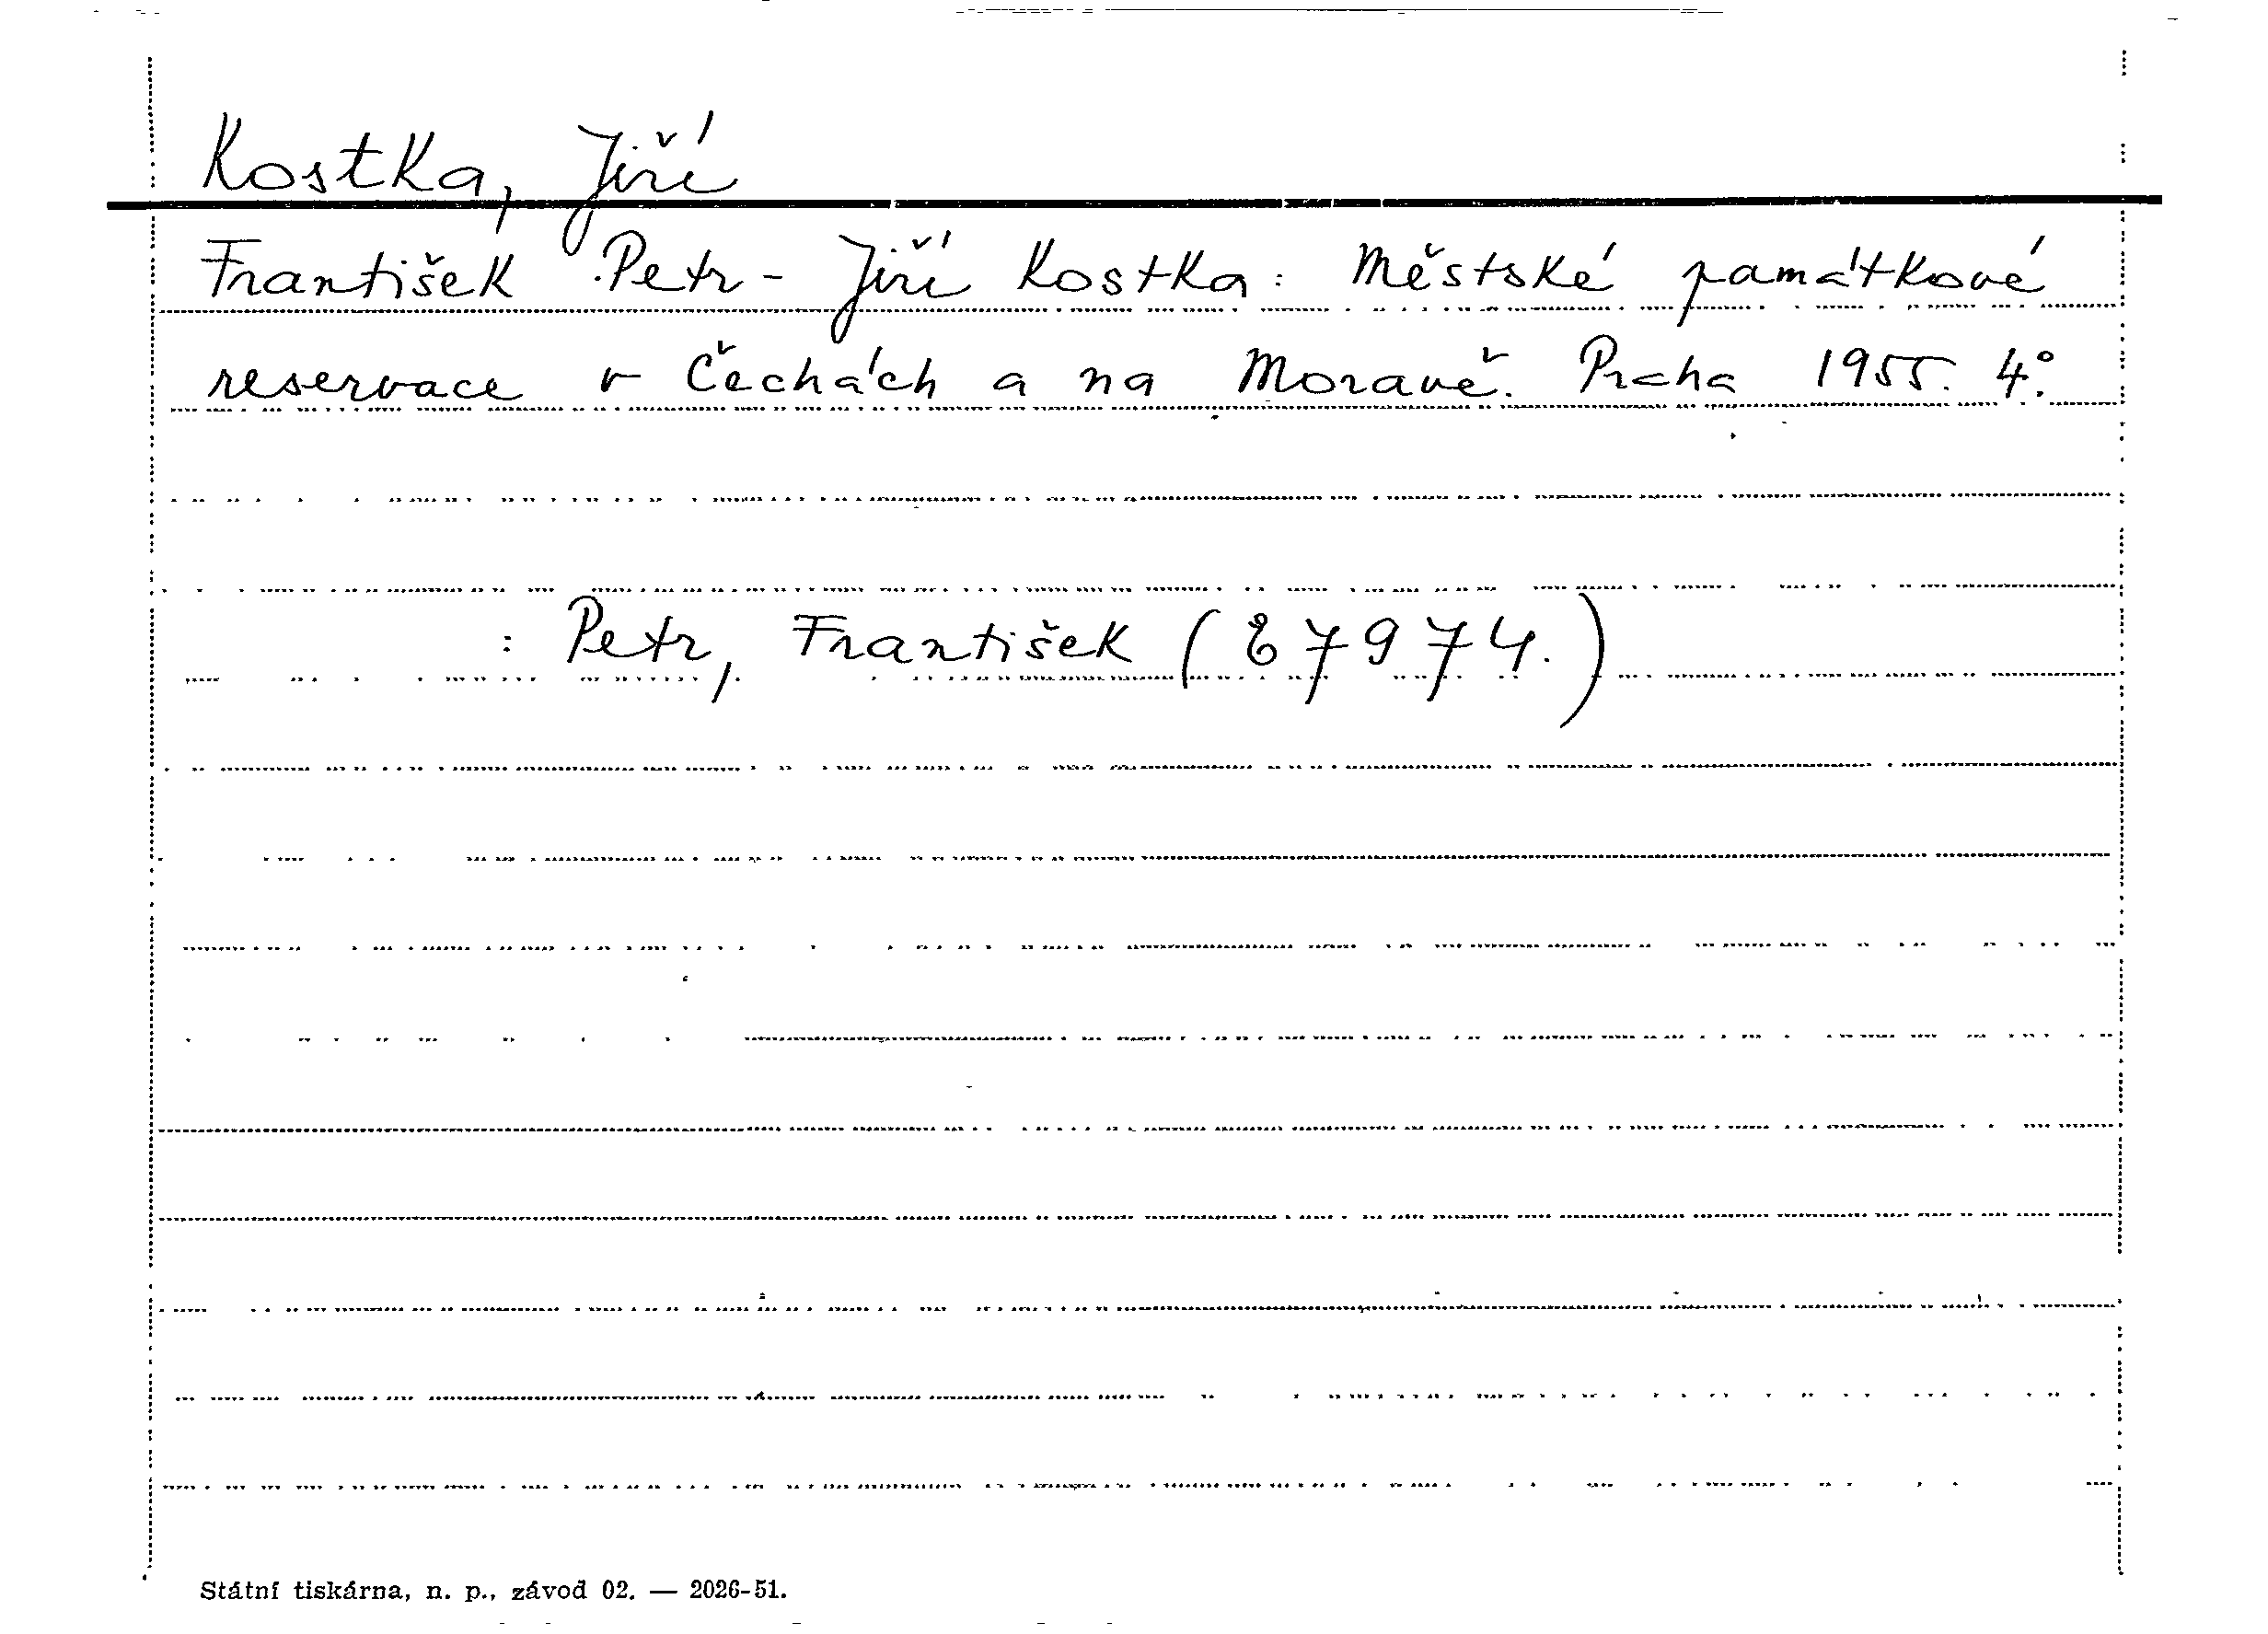 Kostka, Jiří
František Petr - Jiří Kostka: Městské památkové
reservace v Čechách a na Moravě. Praha 1955. 4°.
: Petr, František ( 87974. )
Státní tiskárna, n. p., závod 02. — 2026-51.